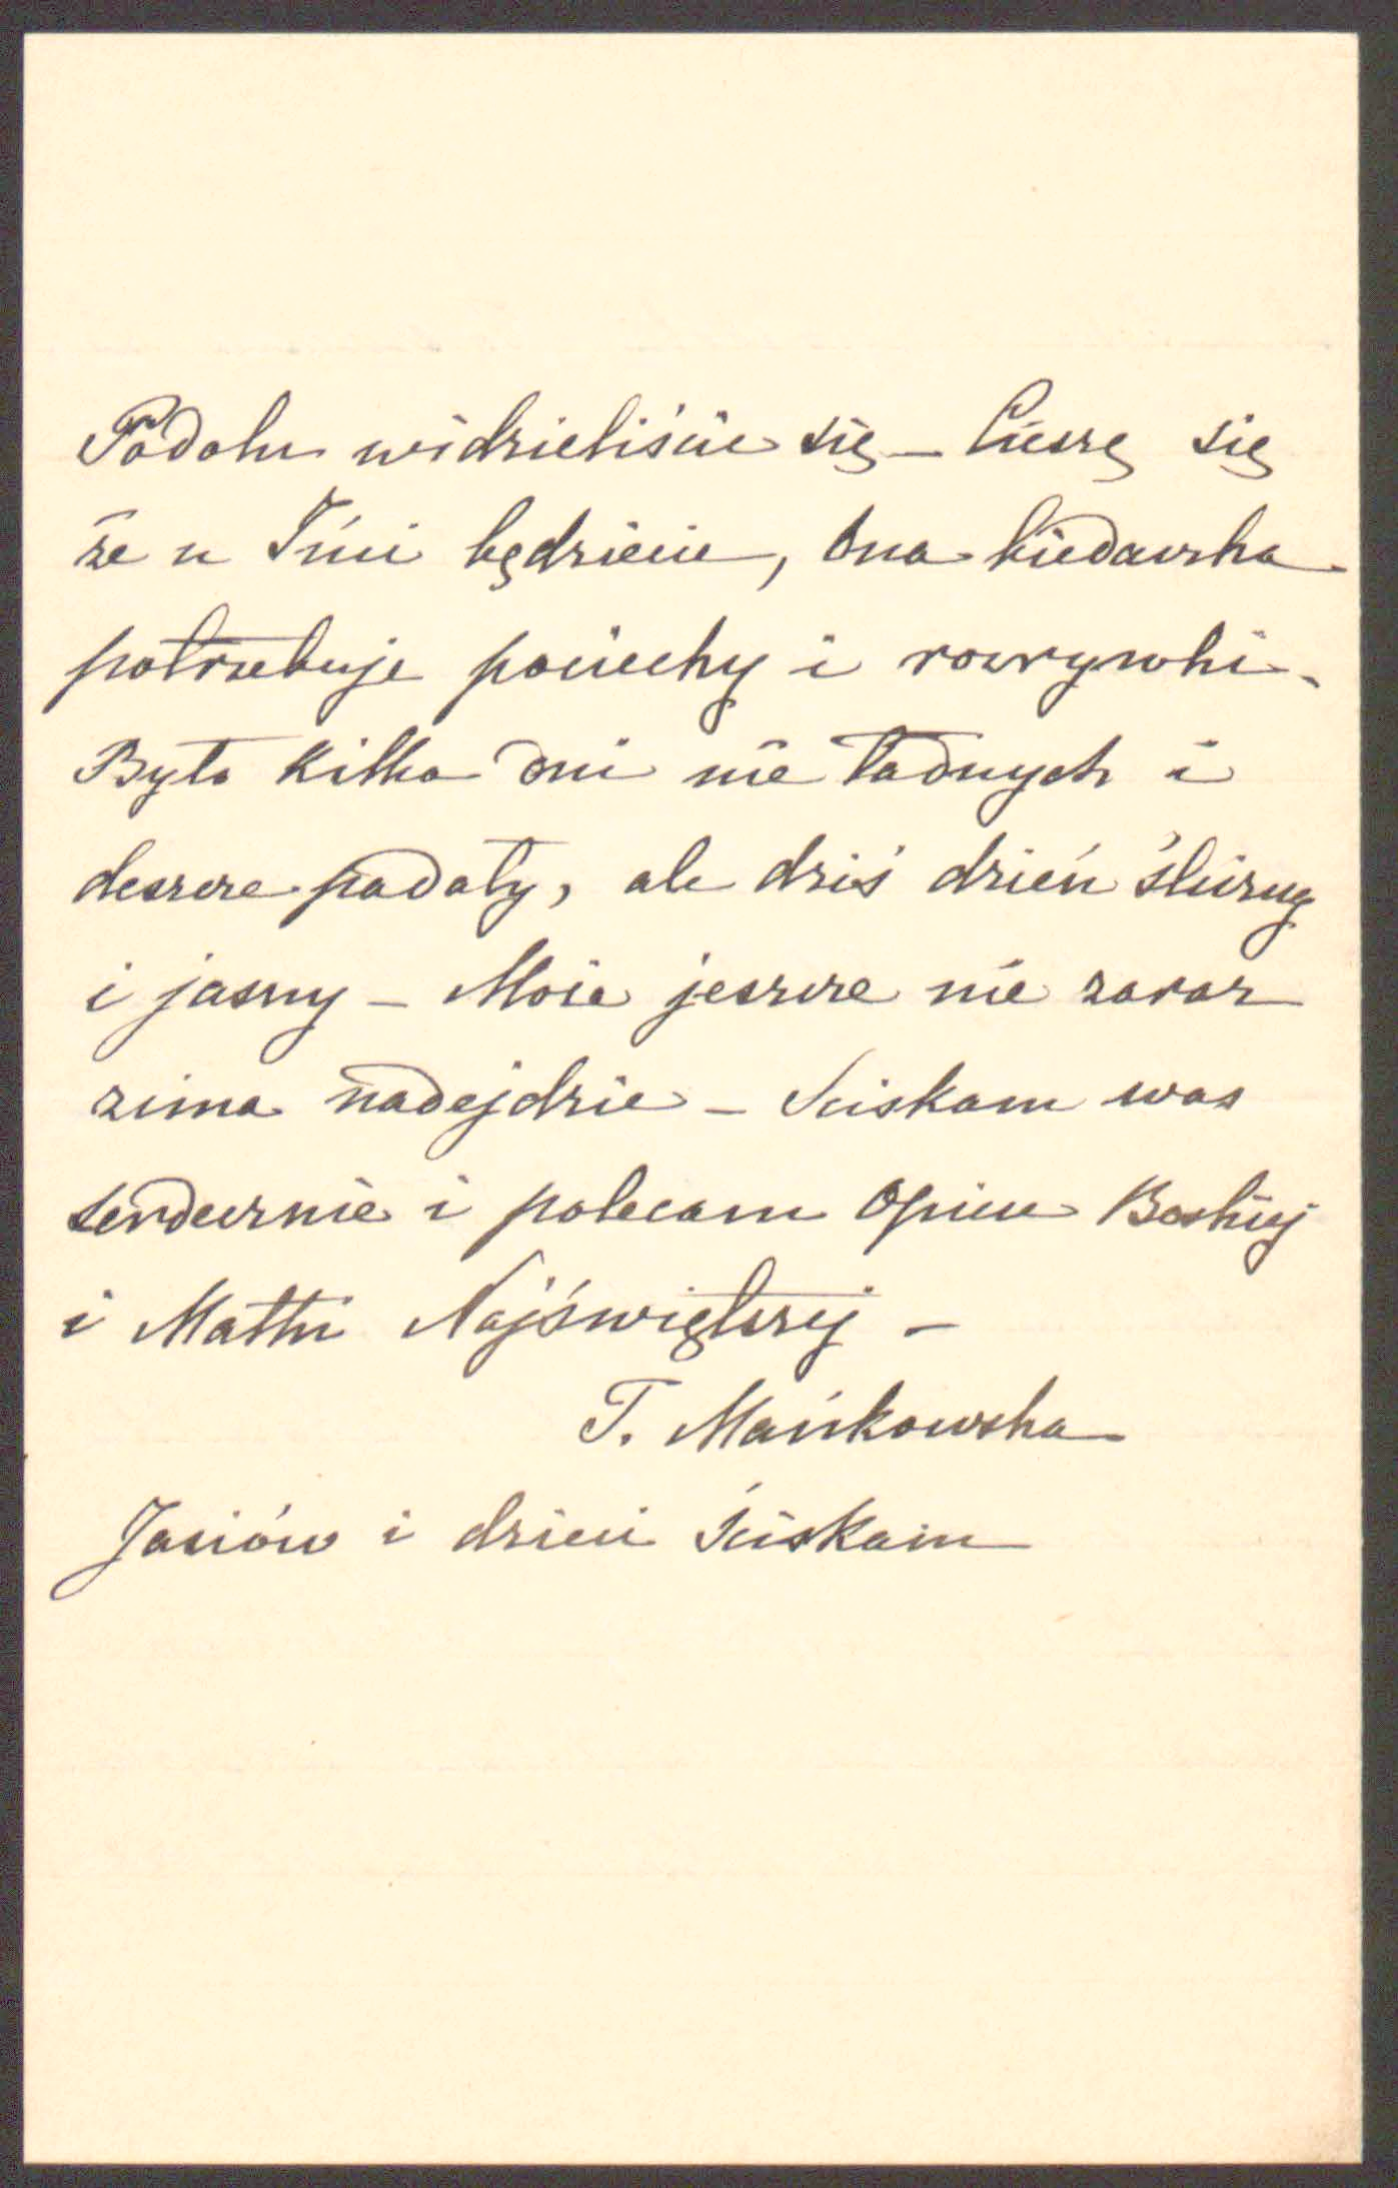 Podolu widzieliście się – Cieszę się
że u Tini będziecie, Ona biedaczka
potrzebuje pociechy i rozrywki.
Było kilka dni nie ładnych i
deszcze padały, ale dziś dzień śliczny
i jasny – Może jeszcze nie zaraz
zima nadejdzie – Ściskam was
serdecznie i polecam Opiece Boskiej
i Matki Najświętszej –
T. Mańkowska
Jasiów i dzieci ściskam